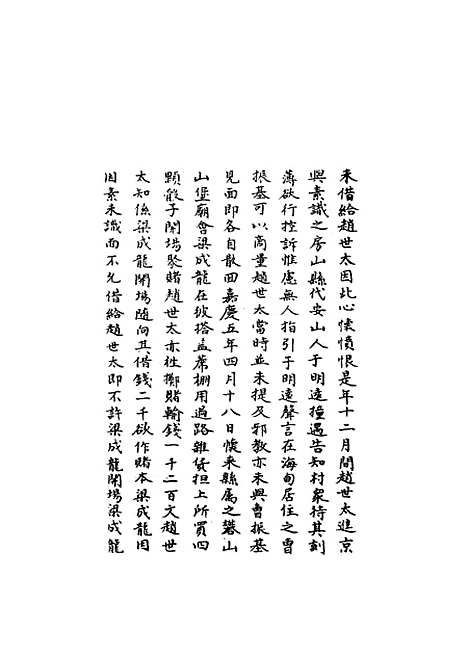 來借給趙世太因此心懷憤恨是年十二月間趙世太進京
與素識之房山縣代安山人于明遠撞遇告知村衆待其刻
薄欲行控訴惟慮無人指引于明遠聲言在海甸居住之曹
振基可以商量趙世太當時並未提及邪教亦未與曹振基
見面即各自散回嘉慶五年四月十八日懷來縣屬之礬山
山堡廟會梁成龍在彼搭盖蓆棚用過路雜貨担上所買四
顆骰子開場聚賭趙世太亦往擲賭輸錢一千二百文趙世
太知係梁成龍開場隨向其借錢二千欲作賭本梁成龍因
因素未識面不允借給趙世太即不許梁成龍開場梁成龍